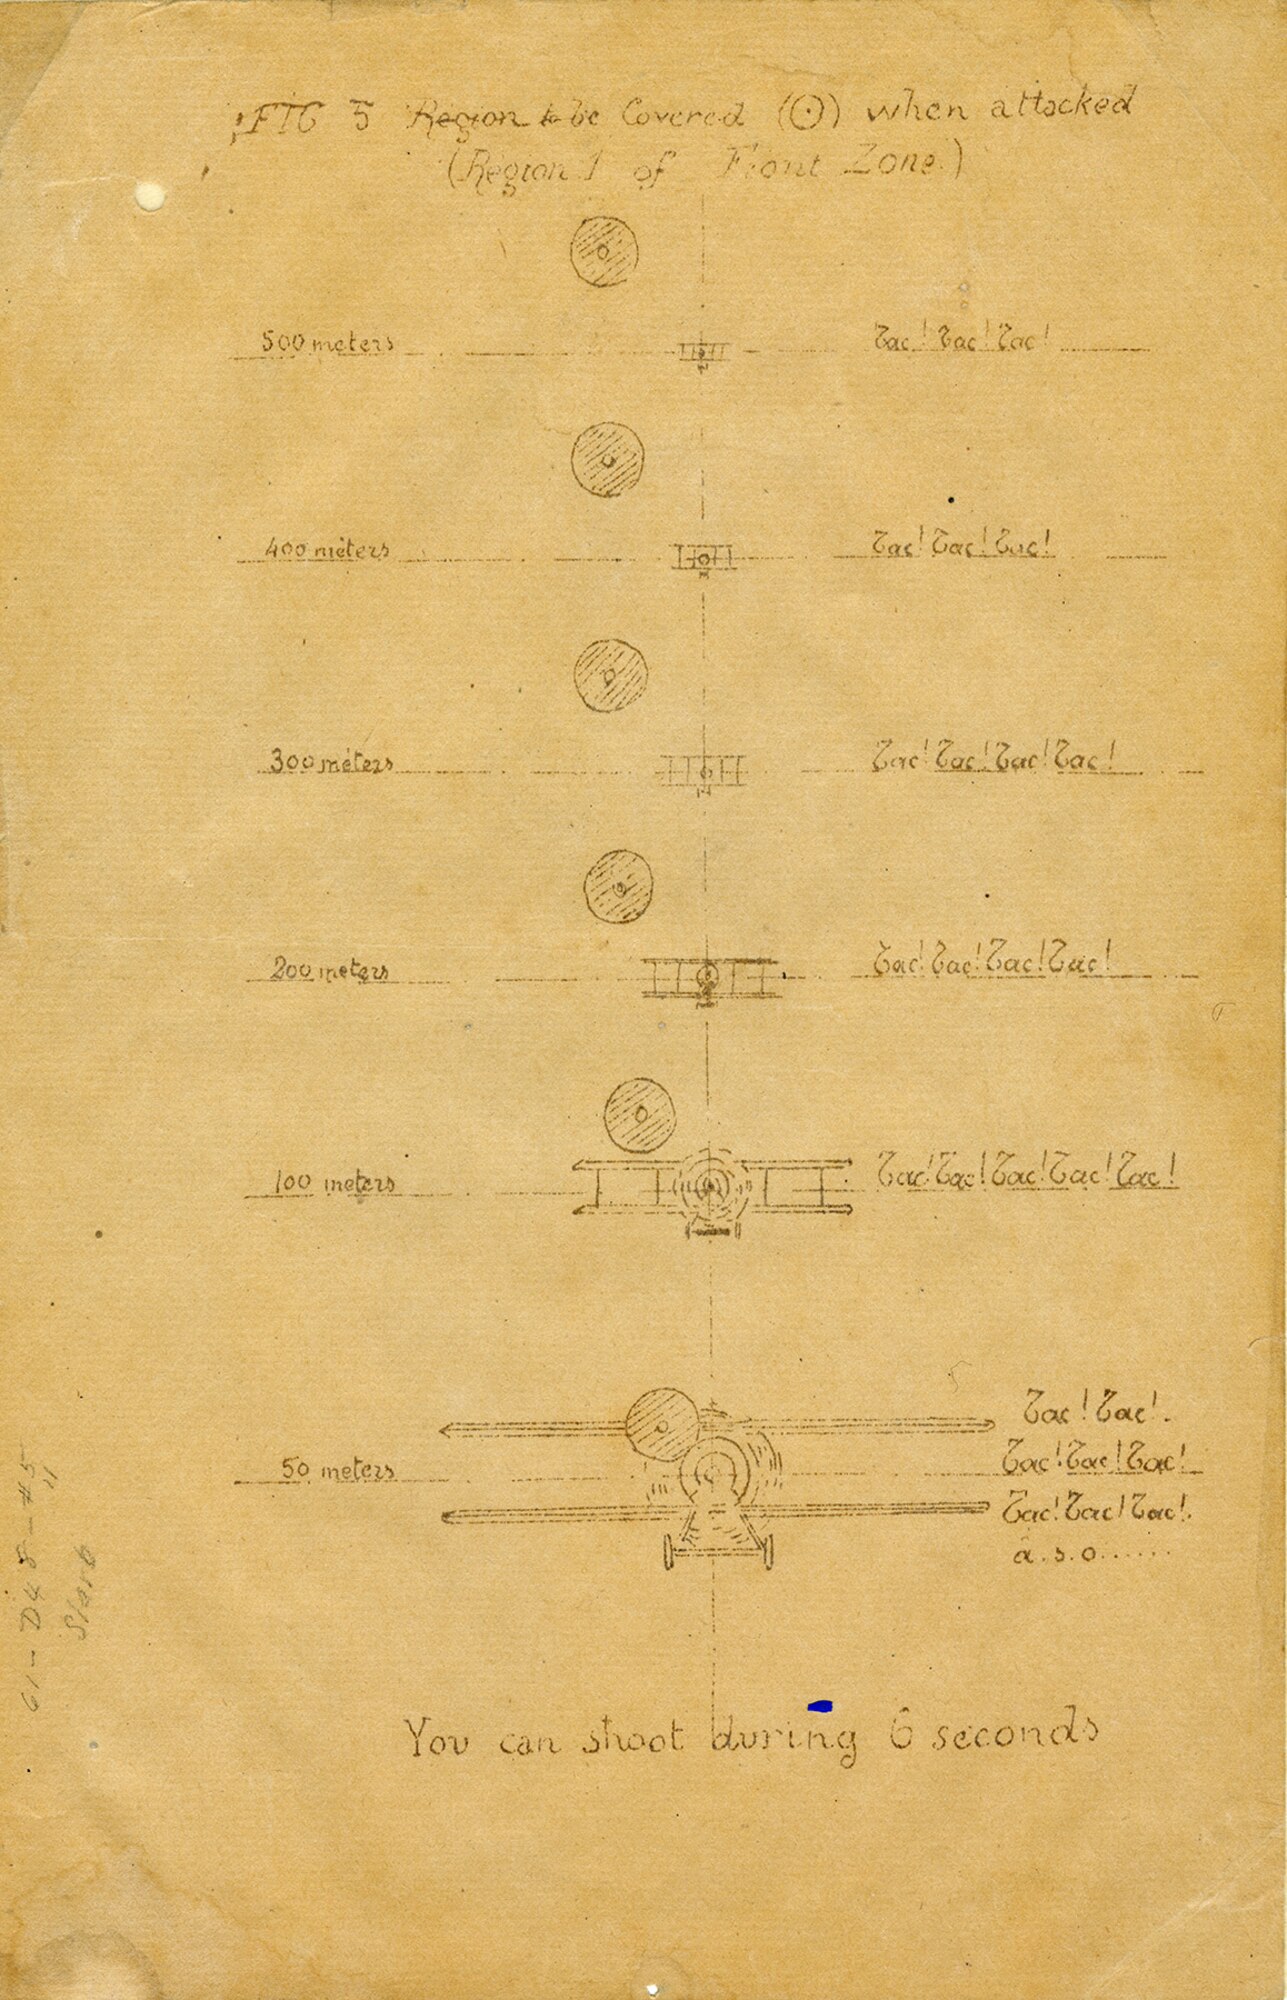 FIG 5 Region to be Covered (⊙) when attacked
(Region 1 of Front Zone.)
500 meters Tac! Tac! Tac!
400 meters Tac! Tac! Tac!
300 meters Tac! Tac! Tac! Tac!
200 meters Tac! Tac! Tac! Tac!
100 meters Tac! Tac! Tac! Tac! Tac!
Tac! Tac!.
50 meters Tac! Tac! Tac!
Tac! Tac! Tac!.
a.s.o......
You can shoot during 6 seconds
61-D48-#5